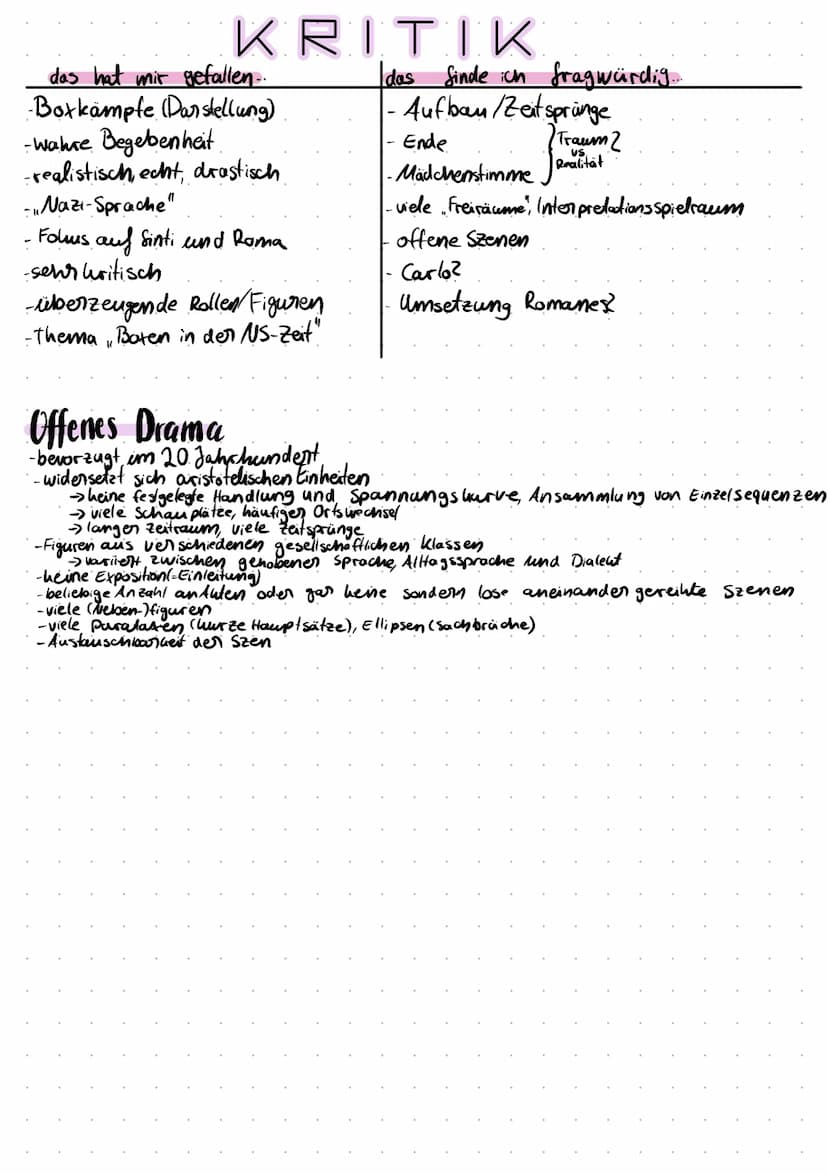 KRITIK
das hat mir gefallen..
- Boxkämpfe (Darstellung)
- wahre Begebenheit
- realistisch, echt, drastisch
- „Nazi-Sprache"
- Fokus auf Sinti und Roma
- sehr kritisch
- überzeugende Rollen/Figuren
- Thema „Boxen in der NS-Zeit"
das finde ich fragwürdig...
- Aufbau/Zeitsprünge
- Ende
- Mädchenstimme
Traum?
vs
Realität
- viele „Freiräume", Interpretationsspielraum
- offene Szenen
- Carlo?
- Umsetzung Romanes?
Offenes Drama
- bevorzugt im 20. Jahrhundert
- widersetzt sich aristotelischen Einheiten
→ keine festgelegte Handlung und Spannungskurve, Ansammlung von Einzelsequenzen
→ viele Schauplätze, häufigen Ortswechsel
→ langen Zeitraum, viele Zeitsprünge
- Figuren aus verschiedenen gesellschaftlichen Klassen
→ variiert zwischen gehobenen Sprache, Alltagssprache und Dialekt
- keine Exposition (=Einleitung)
- beliebige Anzahl an Akten oder gar keine sondern lose aneinander gereihte Szenen
- viele (Neben-)figuren
- viele Parataxen (kurze Hauptsätze), Ellipsen (Satzbrüche)
- Austauschbarkeit der Szen